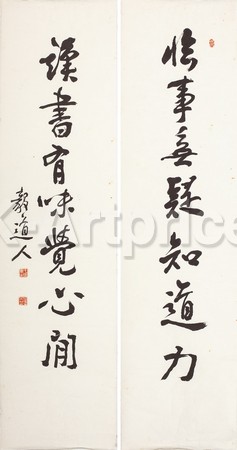 臨事無疑知道力
讀書有味覺心閒
毅道人
K-Artprice